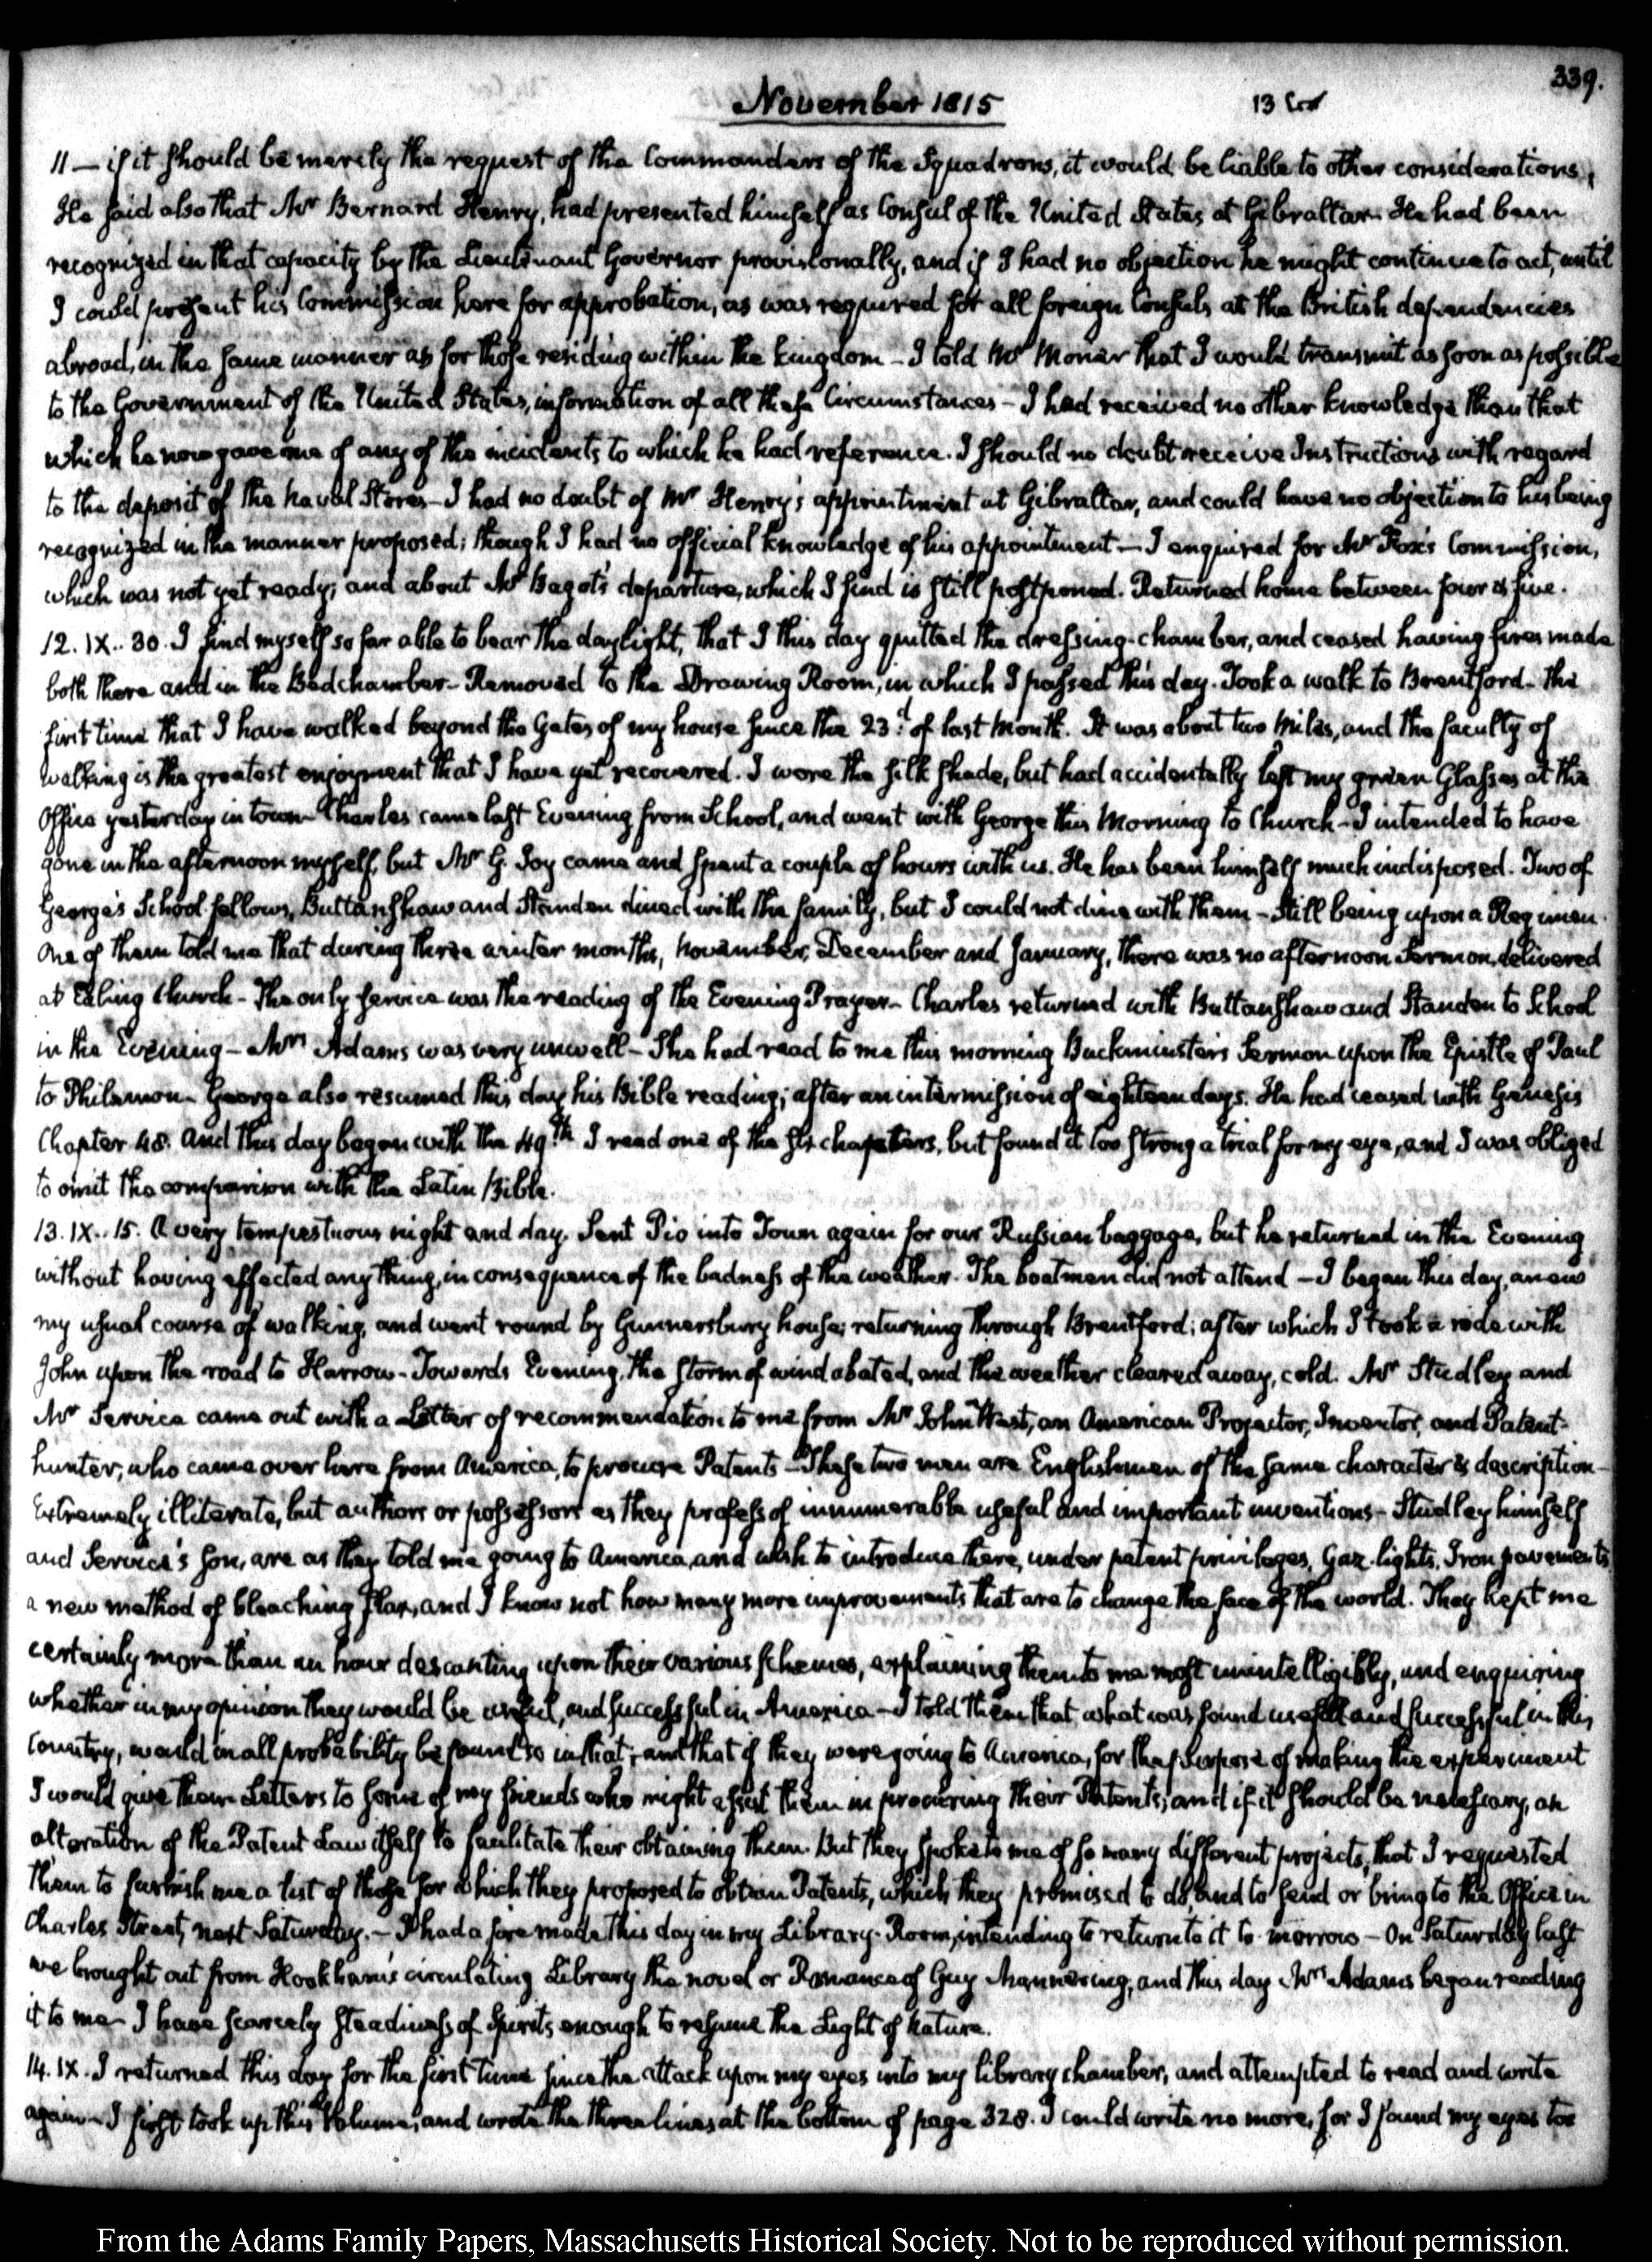 339.
November 1815
11 — if it should be merely the request of the Commanders of the Squadrons, it would be liable to other considerations,
He said also that Mr Bernard Henry, had presented himself as Consul of the United States at Gibraltar. He had been
recognized in that capacity by the Lieutenant Governor provisionally, and if I had no objection he might continue to act, until
I could present his Commission here for approbation, as was required for all foreign Consuls at the British dependencies
abroad, in the same manner as for those residing within the kingdom — I told Mr Morier that I would transmit as soon as possible
to the Government of the United States, information of all these Circumstances — I had received no other knowledge than that
which he now gave me of any of the incidents to which he had reference. I should no doubt receive Instructions with regard
to the deposit of the naval Stores — I had no doubt of Mr Henry's appointment at Gibraltar, and could have no objection to his being
recognized in the manner proposed; though I had no official knowledge of his appointment — I enquired for Mr Fox's Commission,
which was not yet ready; and about Mr Bagot's departure, which I find is still postponed. Returned home between four & five.
12. IX.. 30. I find myself so far able to bear the daylight, that I this day quitted the dressing-chamber, and ceased having fires made
both there and in the Bedchamber — Removed to the Drawing Room, in which I passed this day. Took a walk to Brentford — the
first time that I have walked beyond the Gates of my house since the 23d of last Month. It was about two Miles, and the faculty of
walking is the greatest enjoyment that I have yet recovered. I wore the silk shade, but had accidentally left my green Glasses at the
Office yesterday in town — Charles came last Evening from School, and went with George this Morning to Church — I intended to have
gone in the afternoon myself, but Mr G. Joy came and spent a couple of hours with us. He has been himself much indisposed. Two of
George's School-fellows, Buttanshaw and Standen dined with the family, but I could not dine with them — still being upon a Regimen.
One of them told me that during three winter months, November, December and January, there was no afternoon Sermon, delivered
at Ealing Church — The only service was the reading of the Evening Prayer — Charles returned with Buttanshaw and Standen to School
in the Evening — Mrs Adams was very unwell — She had read to me this morning Buckminster's Sermon upon the Epistle of Paul
to Philemon — George also resumed this day his Bible reading; after an intermission of eighteen days. He had ceased with Genesis
Chapter 48. and this day began with the 49th. I read one of the chapters, but found it too strong a trial for my eye, and I was obliged
to omit the comparison with the Latin Bible.
13. IX.. 15. A very tempestuous night and day. Sent Pio into Town again for our Russian baggage, but he returned in the Evening
without having effected any thing, in consequence of the badness of the weather. The boatmen did not attend — I began this day, anew
my usual course of walking, and went round by Gunnersbury house; returning through Brentford; after which I took a ride with
John upon the road to Harrow — Towards Evening, the storm of wind abated, and the weather cleared away, cold. Mr Studley and
Mr Service came out with a Letter of recommendation to me from Mr John West, an American Projector, Inventor, and Patent-
hunter, who came over here from America, to procure Patents — These two men are Englishmen of the same character & description —
Extremely illiterate, but authors or possessors as they profess of innumerable useful and important inventions — Studley himself
and Service's son, are as they told me going to America, and wish to introduce there, under patent privileges, Gaz-lights, Iron pavements
a new method of bleaching flax, and I know not how many more improvements that are to change the face of the world. They kept me
certainly more than an hour descanting upon their various schemes, explaining them to me most unintelligibly, and enquiring
whether in my opinion they would be useful, and successful in America — I told them that what was found useful and successful in this
Country, would in all probability be found so in that; and that if they were going to America, for the purpose of making the experiment
I would give them Letters to some of my friends who might assist them in procuring their Patents; and if it should be necessary, an
alteration of the Patent Law itself to facilitate their obtaining them. But they spoke to me of so many different projects, that I requested
them to furnish me a list of those for which they proposed to obtain Patents, which they promised to do, and to send or bring to the Office in
Charles Street, next Saturday. — I had a fire made this day in my Library-Room, intending to return to it to-morrow — On Saturday last
we brought out from Hookham's circulating Library the novel or Romance of Guy Mannering, and this day Mrs Adams began reading
it to me — I have scarcely steadiness of Spirits enough to resume the Light of Nature.
14. IX. I returned this day for the first time since the attack upon my eyes into my library chamber, and attempted to read and write
again — I first took up this Volume, and wrote the three lines at the bottom of page 328. I could write no more, for I found my eyes too
From the Adams Family Papers, Massachusetts Historical Society. Not to be reproduced without permission.